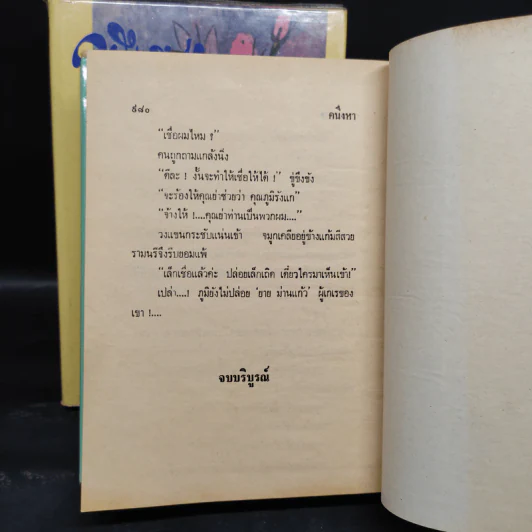 ๕๘๐ คนึงหา
“เชื่อผมไหม ?”
คนถูกถามแกล้งนิ่ง
“ดีละ ! งั้นจะทำให้เชื่อให้ได้ !” ขู่ขึงขัง
“จะร้องให้คุณย่าช่วยว่า คุณภูมิรังแก”
“จ้างให้ !....คุณย่าท่านเป็นพวกผม....”
วงแขนกระชับแน่นเข้า จมูกเคลียอยู่ข้างแก้มสีสวย
รามนรีจึงรีบยอมแพ้
“เล็กเชื่อแล้วค่ะ ปล่อยเล็กเถิด เดี๋ยวใครมาเห็นเข้า!”
เปล่า....! ภูมิยังไม่ปล่อย ‘ยาย ม่านแก้ว’ ผู้เกเรของ
เขา !....
จบบริบูรณ์